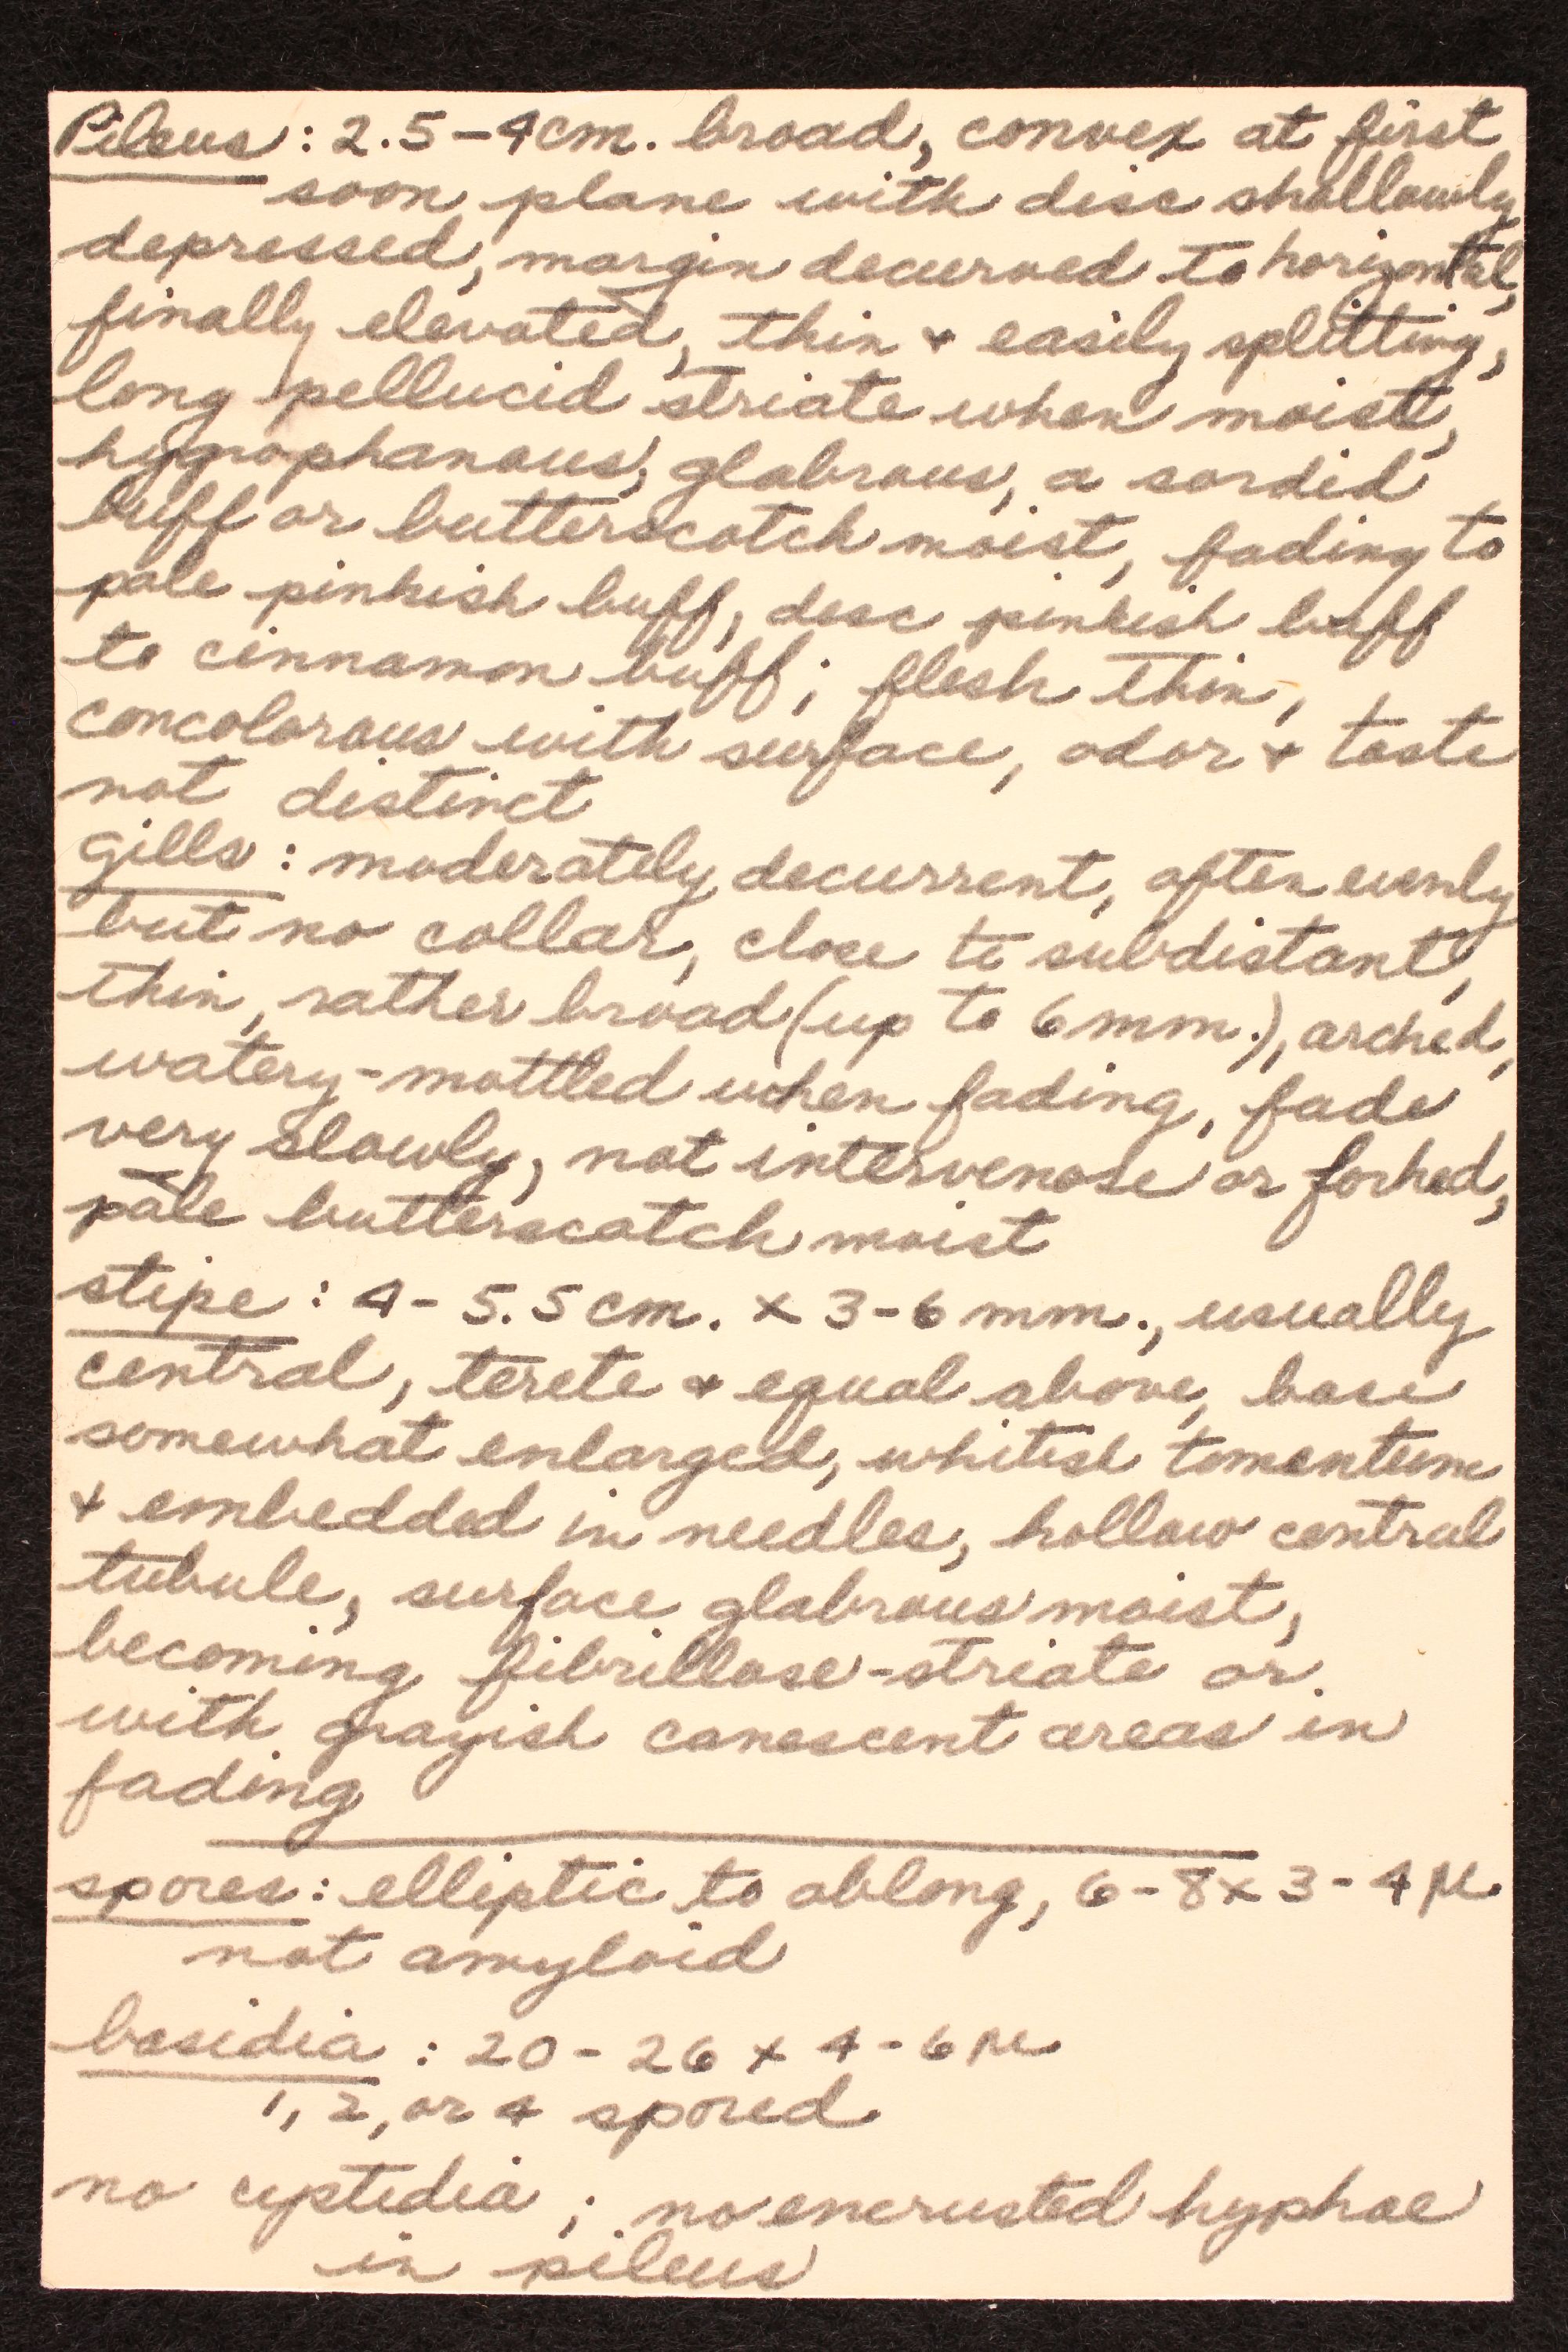 Pileus: 2.5-4cm. broad, convex at first
soon plane with disc shallowly
depressed, margin decurved to horizontal,
finally elevated, thin & easily splitting,
long pellucid striate when moist,
hygrophanous, glabrous, a sordid
buff or butterscotch moist, fading to
pale pinkish buff, disc pinkish buff
to cinnamon buff; flesh thin,
concolorous with surface, odor & taste
not distinct
gills: moderately decurrent, often evenly
but no collar, close to subdistant,
thin, rather broad (up to 6mm.), arched,
watery-mottled when fading, fade
very slowly, not intervenose or forked,
pale butterscotch moist
stipe: 4-5.5cm. x 3-6mm., usually
central, terete & equal above, base
somewhat enlarged, whitish tomentum
& embedded in needles, hollow central
tubule, surface glabrous moist,
becoming fibrillose-striate or
with grayish canescent areas in
fading
spores: elliptic to oblong, 6-8x3-4μ.
not amyloid
basidia: 20-26 x 4-6μ
1, 2, or 4 spored
no cyptidia; no encrusted hyphae
in pileus